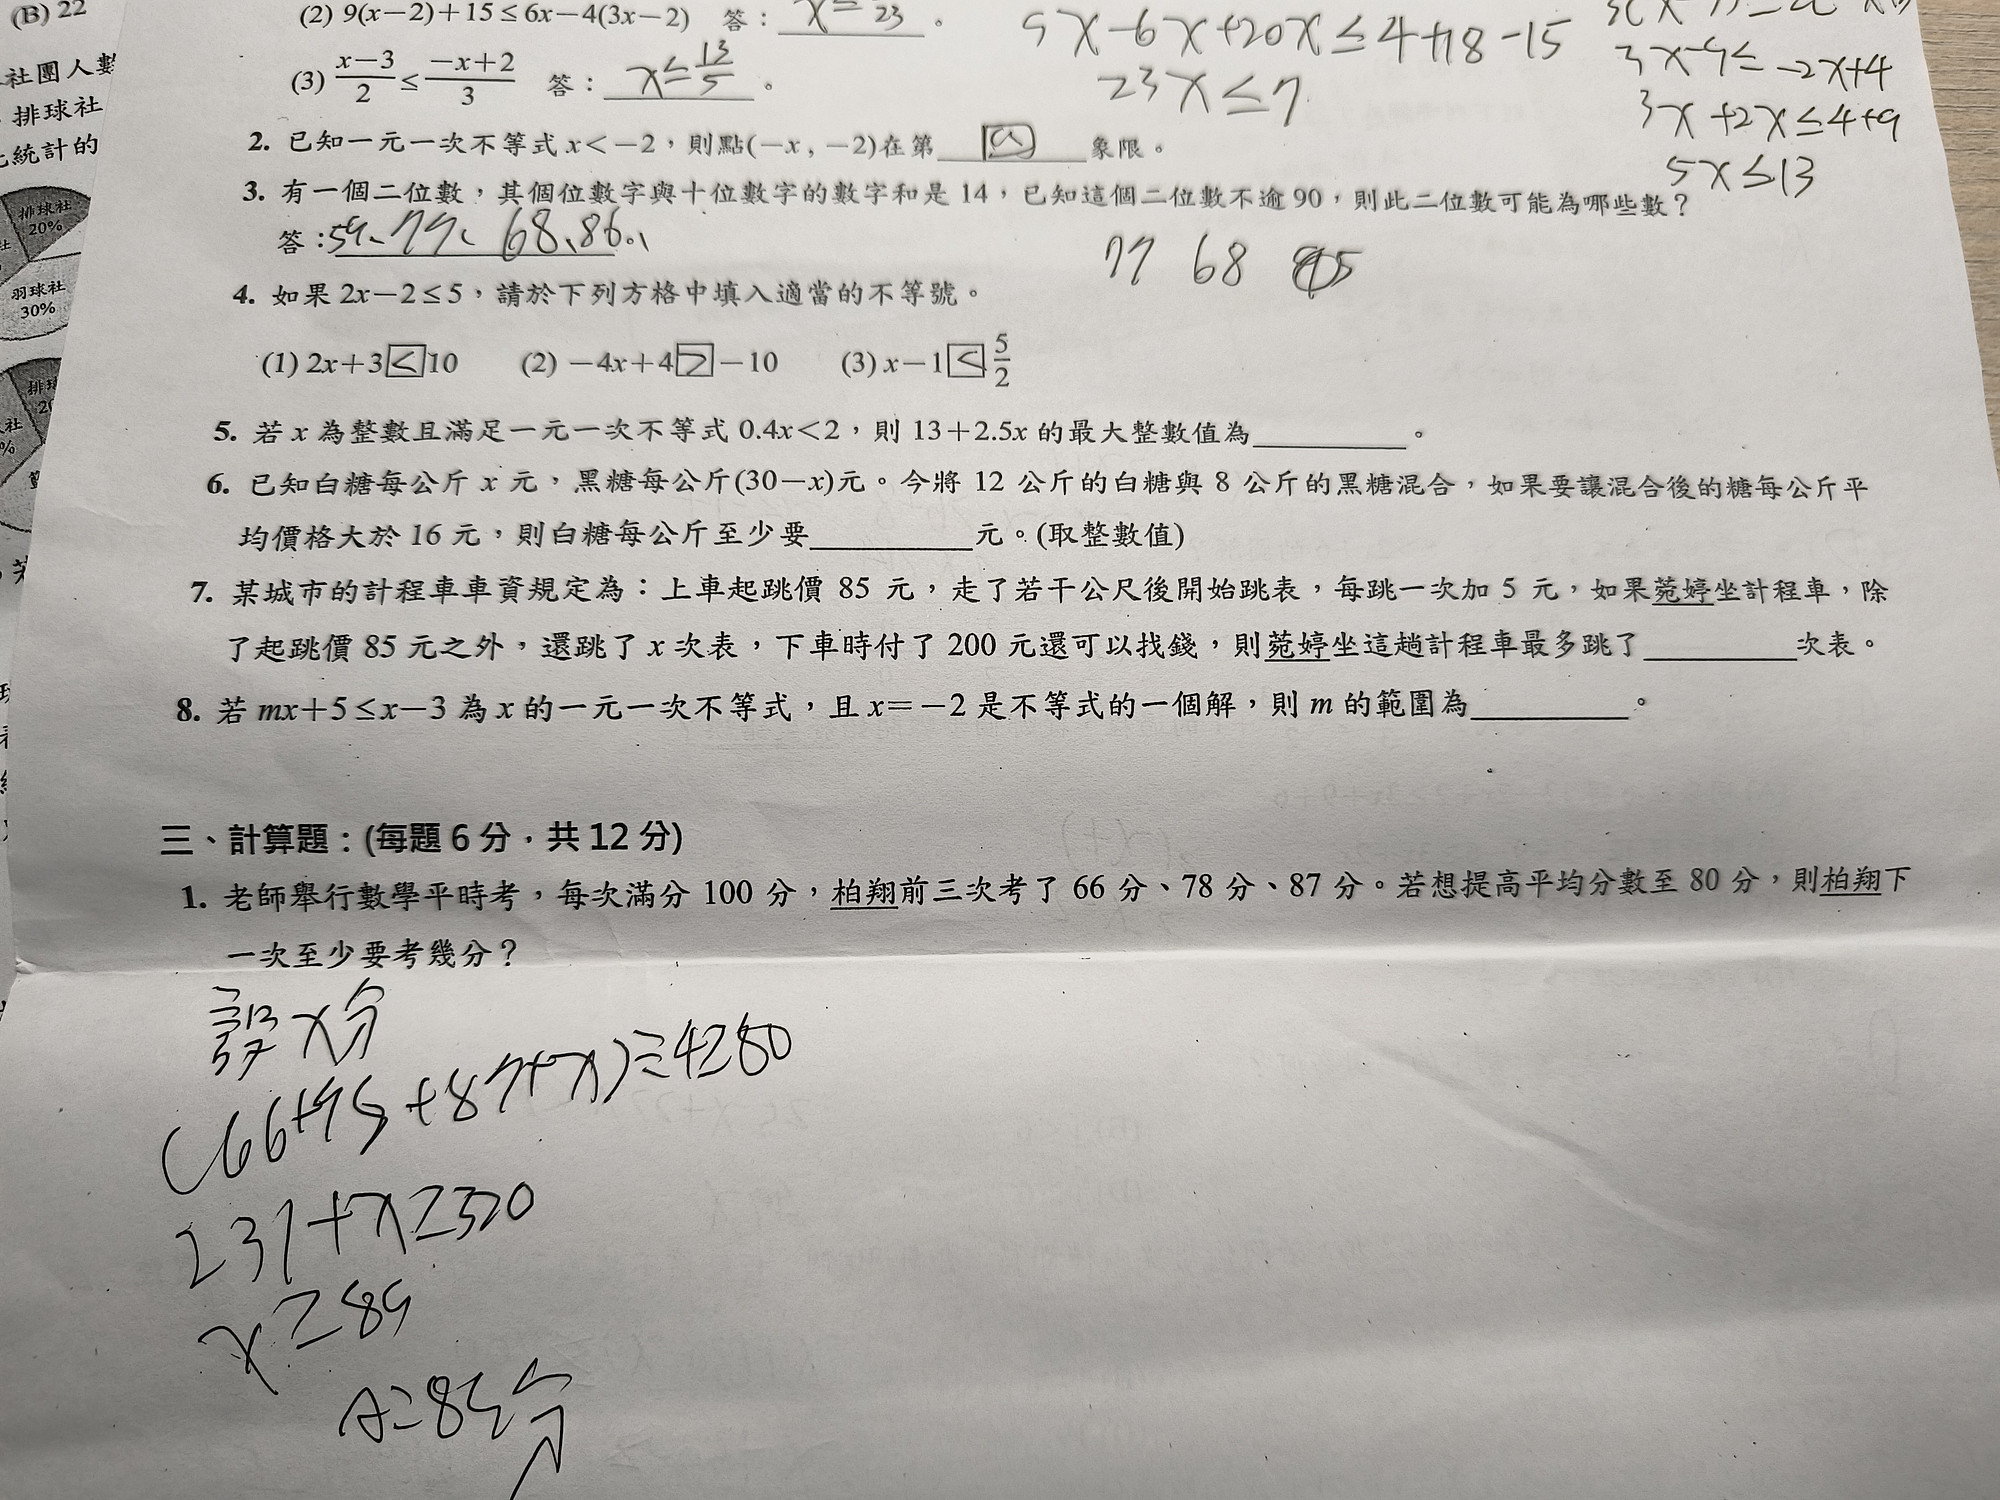 (B) 22
社團人數
排球社
統計的
排球社
20%
羽球社
30%
(2) 9(x−2)+15≤6x−4(3x−2) 答：x≤ 23 。
(3) \frac{x−3}{2}≤\frac{−x+2}{3} 答：x≤\frac{13}{5}。
9x−6x+20x≤4+18−15
23x≤7
3x−9≤−2x+4
3x+2x≤4+9
5x≤13
2. 已知一元一次不等式 x<−2，則點(−x , −2)在第 四 象限。
3. 有一個二位數，其個位數字與十位數字的數字和是 14，已知這個二位數不逾 90，則此二位數可能為哪些數？
答：59、77、68、86。
77 68
4. 如果 2x−2≤5，請於下列方格中填入適當的不等號。
(1) 2x+3≤10 (2) −4x+4≥−10 (3) x−1≤\frac{5}{2}
5. 若 x 為整數且滿足一元一次不等式 0.4x<2，則 13+2.5x 的最大整數值為＿＿＿＿。
6. 已知白糖每公斤 x 元，黑糖每公斤(30−x)元。今將 12 公斤的白糖與 8 公斤的黑糖混合，如果要讓混合後的糖每公斤平
均價格大於 16 元，則白糖每公斤至少要＿＿＿＿元。(取整數值)
7. 某城市的計程車車資規定為：上車起跳價 85 元，走了若干公尺後開始跳表，每跳一次加 5 元，如果菀婷坐計程車，除
了起跳價 85 元之外，還跳了 x 次表，下車時付了 200 元還可以找錢，則菀婷坐這趟計程車最多跳了＿＿＿＿次表。
8. 若 mx+5≤x−3 為 x 的一元一次不等式，且 x=−2 是不等式的一個解，則 m 的範圍為＿＿＿＿。
三、計算題：(每題 6 分，共 12 分)
1. 老師舉行數學平時考，每次滿分 100 分，柏翔前三次考了 66 分、78 分、87 分。若想提高平均分數至 80 分，則柏翔下
一次至少要考幾分？
設x分
231+x≥320
x≥89